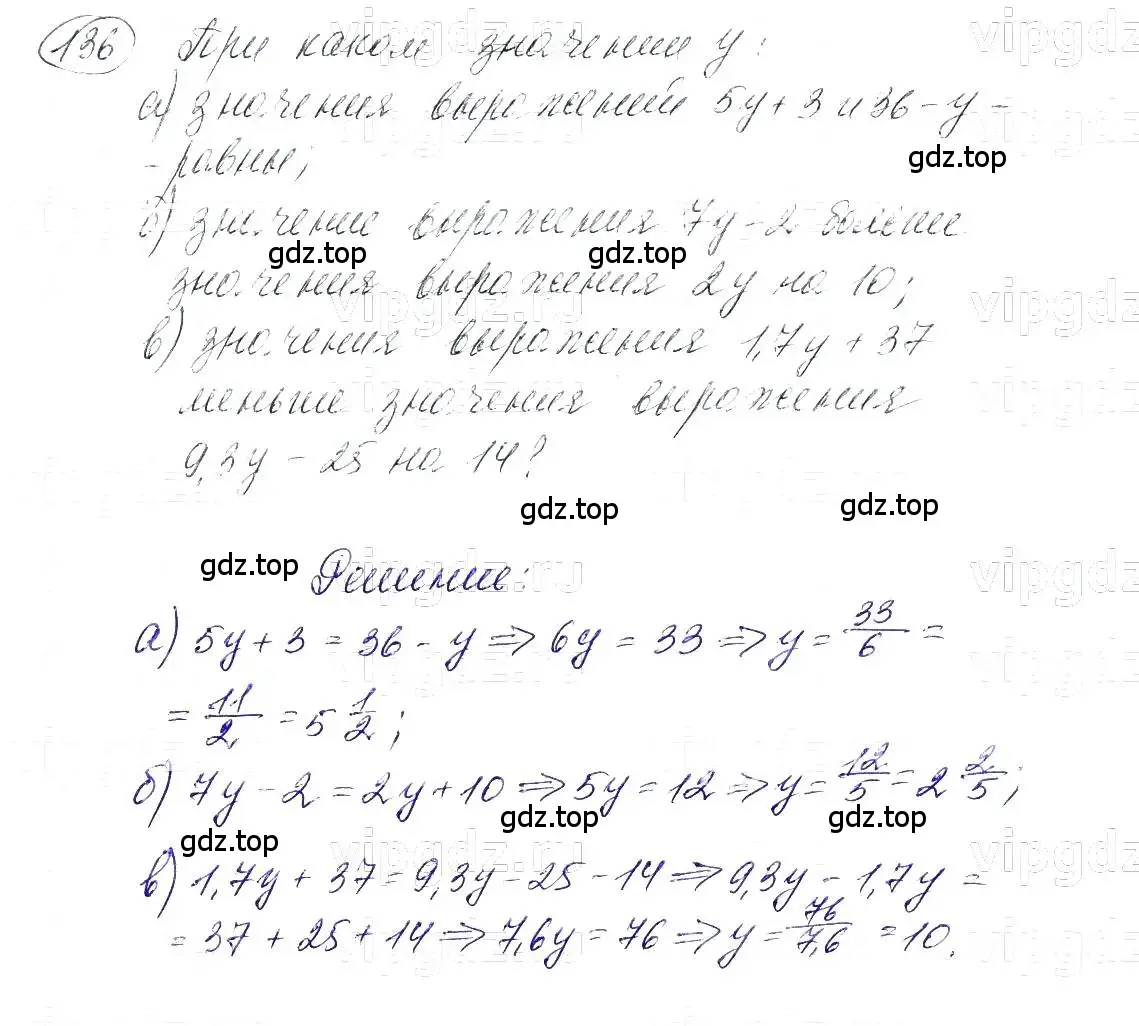 136 При каком значении y:
а) значения выражений 5y + 3 и 36 - y -
- равны;
б) значение выражения 7y - 2 больше
значения выражения 2y на 10;
в) значения выражения 1,7y + 37
меньше значения выражения
9,3y - 25 на 14?
Решение:
а) 5y + 3 = 36 - y => 6y = 33 => y = 33/6 =
= 11/2 = 5 1/2;
б) 7y - 2 = 2y + 10 => 5y = 12 => y = 12/5 = 2 2/5;
в) 1,7y + 37 = 9,3y - 25 - 14 => 9,3y - 1,7y =
= 37 + 25 + 14 => 7,6y = 76 => y = 76/7,6 = 10.
gdz.top
gdz.top
gdz.top
gdz.top
gdz.top
gdz.top
gdz.top
gdz.top
gdz.top
vipgdz.ru
vipgdz
vipgdz.ru
vipgdz
vipgdz.ru
vipgdz
vipgdz.ru
vipgdz
vipgdz.ru
vipgdz
vipgdz.ru
vipgdz